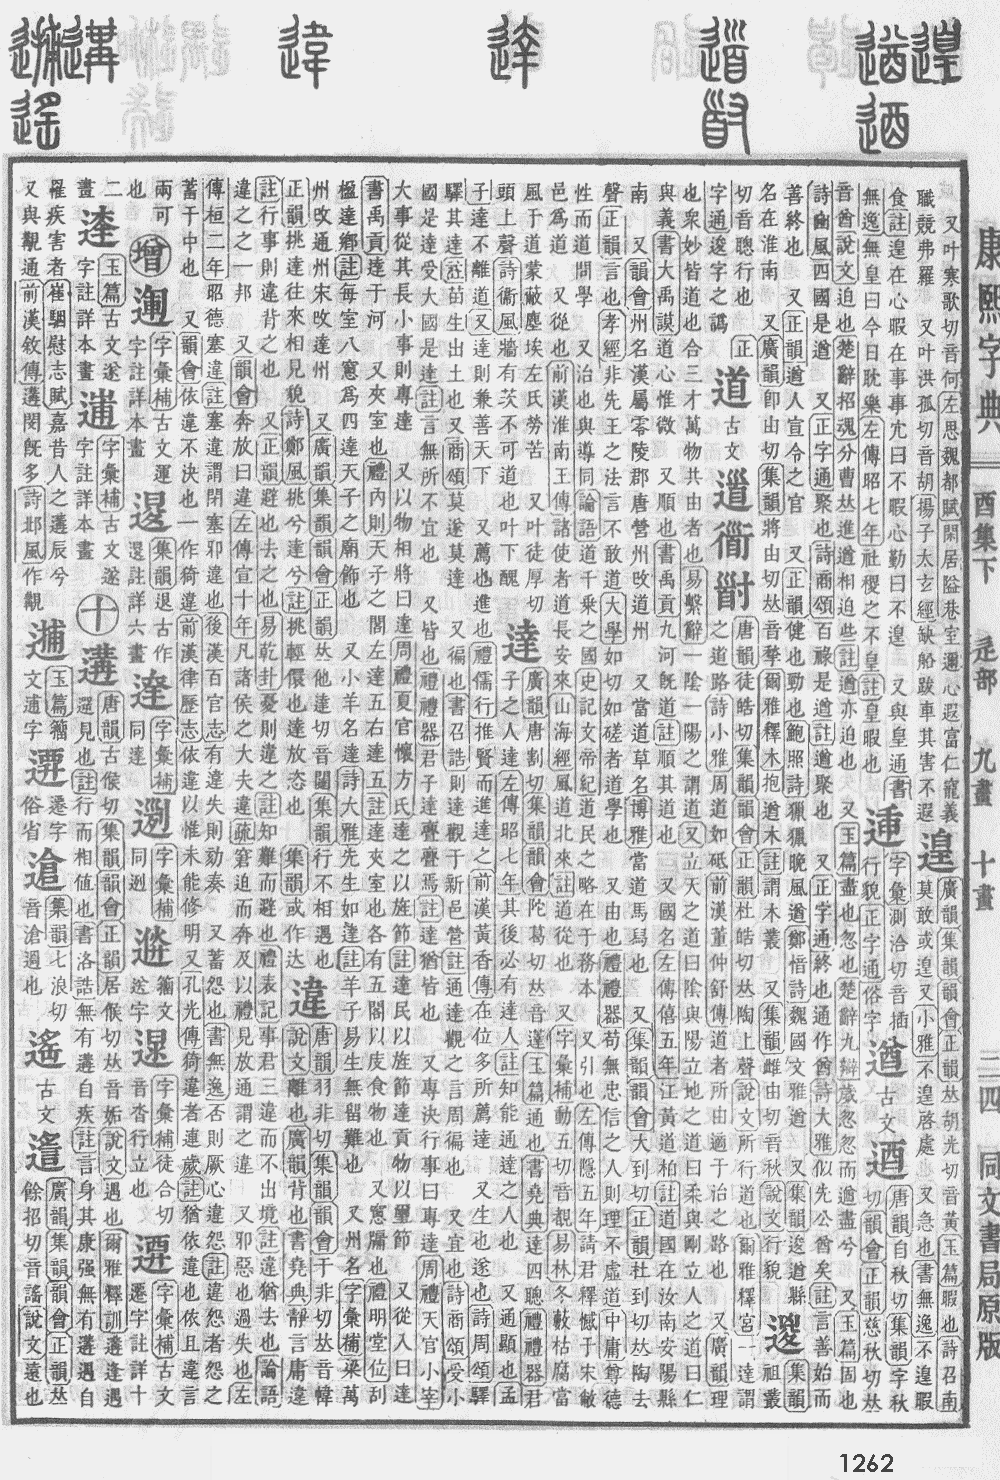 又叶寒歌切音何左思魏都賦閑居隘巷室邇心遐富仁寵義
職競弗羅 又叶洪孤切音胡揚子太玄經缺船跋車其害不遐
遑 廣韻集韻韻會正韻𠀤胡光切音黃玉篇暇也詩召南
莫敢或遑又小雅不遑啓處 又急也書無逸不遑暇
食註遑在心暇在事事尤曰不暇心勤曰不遑 又與皇通書
無逸無皇曰今日耽樂左傳昭七年社稷之不皇註皇暇也
字彙測洽切音插
行貌正字通俗字
遒 古文 逎 唐韻自秋切集韻字秋
切韻會正韻慈秋切𠀤
音酋說文迫也楚辭招魂分曹𠀤進遒相迫些註遒亦迫也
詩豳風四國是遒 又正字通聚也詩商頌百祿是遒註遒聚也
善終也 又正韻遒人宣令之官 又正韻健也勁也鮑照詩獵獵晚風遒
名在淮南 又廣韻卽由切集韻將由切𠀤音揫爾雅釋木抱遒木註謂木叢
切音聰行也
字通逡字之譌
道 古文 𨕥衜𡬹 唐韻徒皓切集韻韻會正韻杜皓切𠀤陶上聲說文所行道也爾雅釋宮一達謂
之道路詩小雅周道如砥前漢董仲舒傳道者所由適于治之路也 又廣韻理
也衆妙皆道也合三才萬物共由者也易繫辭一隂一陽之謂道又立天之道曰隂與陽立地之道曰柔與剛立人之道曰仁
與義書大禹謨道心惟微 又順也書禹貢九河旣道註順其道也 又國名左傳僖五年江黃道柏註道國在汝南安陽縣
南 又韻會州名漢屬零陵郡唐營州攺道州 又當道草名博雅當道馬舄也 又集韻韻會大到切正韻杜到切𠀤陶去
聲正韻言也孝經非先王之法言不敢道大學如切如磋者道學也 又由也禮禮器苟無忠信之人則禮不虛道中庸尊德
性而道問學 又治也與導同論語道千乗之國史記文帝紀道民之略在于務本 又引也左傳隱五年請君釋憾于宋敝
邑爲道 又從也前漢淮南王傳諸使者道長安來山海經風道北來註道從也 又字彙補動五切音覩易林冬藪枯腐當
風于道蒙蔽塵埃左氏勞苦 又叶徒厚切
頭上聲詩衞風牆有茨不可道也叶下醜
達 廣韻唐割切集韻韻會陀葛切𠀤音薘玉篇通也書堯典達四聰禮禮器君
子之人達左傳昭七年其後必有達人註知能通達之人也 又通顯也孟
子達不離道又達則兼善天下 又薦也進也禮儒行推賢而進達之前漢黃香傳在位多所薦達 又生也遂也詩周頌驛
驛其達註苗生出土也又商頌莫遂莫達 又徧也書召誥則達觀于新邑營註通達觀之言周徧也 又宜也詩商頌受小
國是達受大國是達註言無所不宜也 又皆也禮禮器君子達亹亹焉註達猶皆也 又專決行事曰專達周禮天官小宰
大事從其長小事則專達 又以物相將曰達周禮夏官懷方氏達之以旌節註達民以旌節達貢物以璽節 又從人曰達
書禹貢達于河 又夾室也禮內則天子之閣左達五右達五註達夾室也各有五閣以庋食物也 又窻牖也禮明堂位刮
楹達鄕註每室八窻爲四達天子之廟飾也 又小羊名達詩大雅先生如達註羊子易生無留難也 又州名字彙補梁萬
州攺通州宋攺達州 又廣韻集韻韻會正韻𠀤他達切音闥集韻行不相遇也
正韻挑達往來相見貌詩鄭風挑兮達兮註挑輕儇也達放恣也 集韻或作达
違 唐韻羽非切集韻韻會于非切𠀤音幃
說文離也廣韻背也書堯典靜言庸違
註行事則違背之也 又正韻避也去之也易乾卦憂則違之註知難而避也禮表記事君三違而不出境註違猶去也論語
違之之一邦 又韻會奔放曰違左傳宣十年凡諸侯之大夫違疏窘迫而奔及以禮見放通謂之違 又邪惡也過失也左
傳桓二年昭德塞違註塞違謂閉塞邪違也後漢百官志有違失則劾奏 又蓄怨也書無逸否則厥心違怨註違怨者怨之
蓄于中也 又韻會依違不決也一作猗違前漢律歷志依違以惟未能修明又孔光傳猗違者連歲註猶依違也依且違言
兩可
也
增 字彙補古文運
字註詳本畫
集韻退古作
𨓤註詳六畫
字彙補
同達
字彙補
同迾
籀文
迯字
字彙補徒合切
音沓行行立也
字彙補古文
遷字註詳十
二
畫
玉篇古文遂
字註詳本畫
字彙補古文遂
字註詳本畫
十 遘 唐韻古𠋫切集韻韻會正韻居𠋫切𠀤音姤說文遇也爾雅釋訓遘逢遇
遝見也註行而相值也書洛誥無有遘自疾註言身其康强無有遘遇自
罹疾害者崔駰慰志賦嘉昔人之遘辰兮
又與覯通前漢敘傳遘閔旣多詩邶風作覯
玉篇籀
文逋字
遷字
俗省
集韻七浪切
音滄過也
遙 古文 廣韻集韻韻會正韻𠀤
餘招切音謠說文遠也
康熙字典
酉集下 辵部 九畫 十畫
一二四
同文書局原版
1262